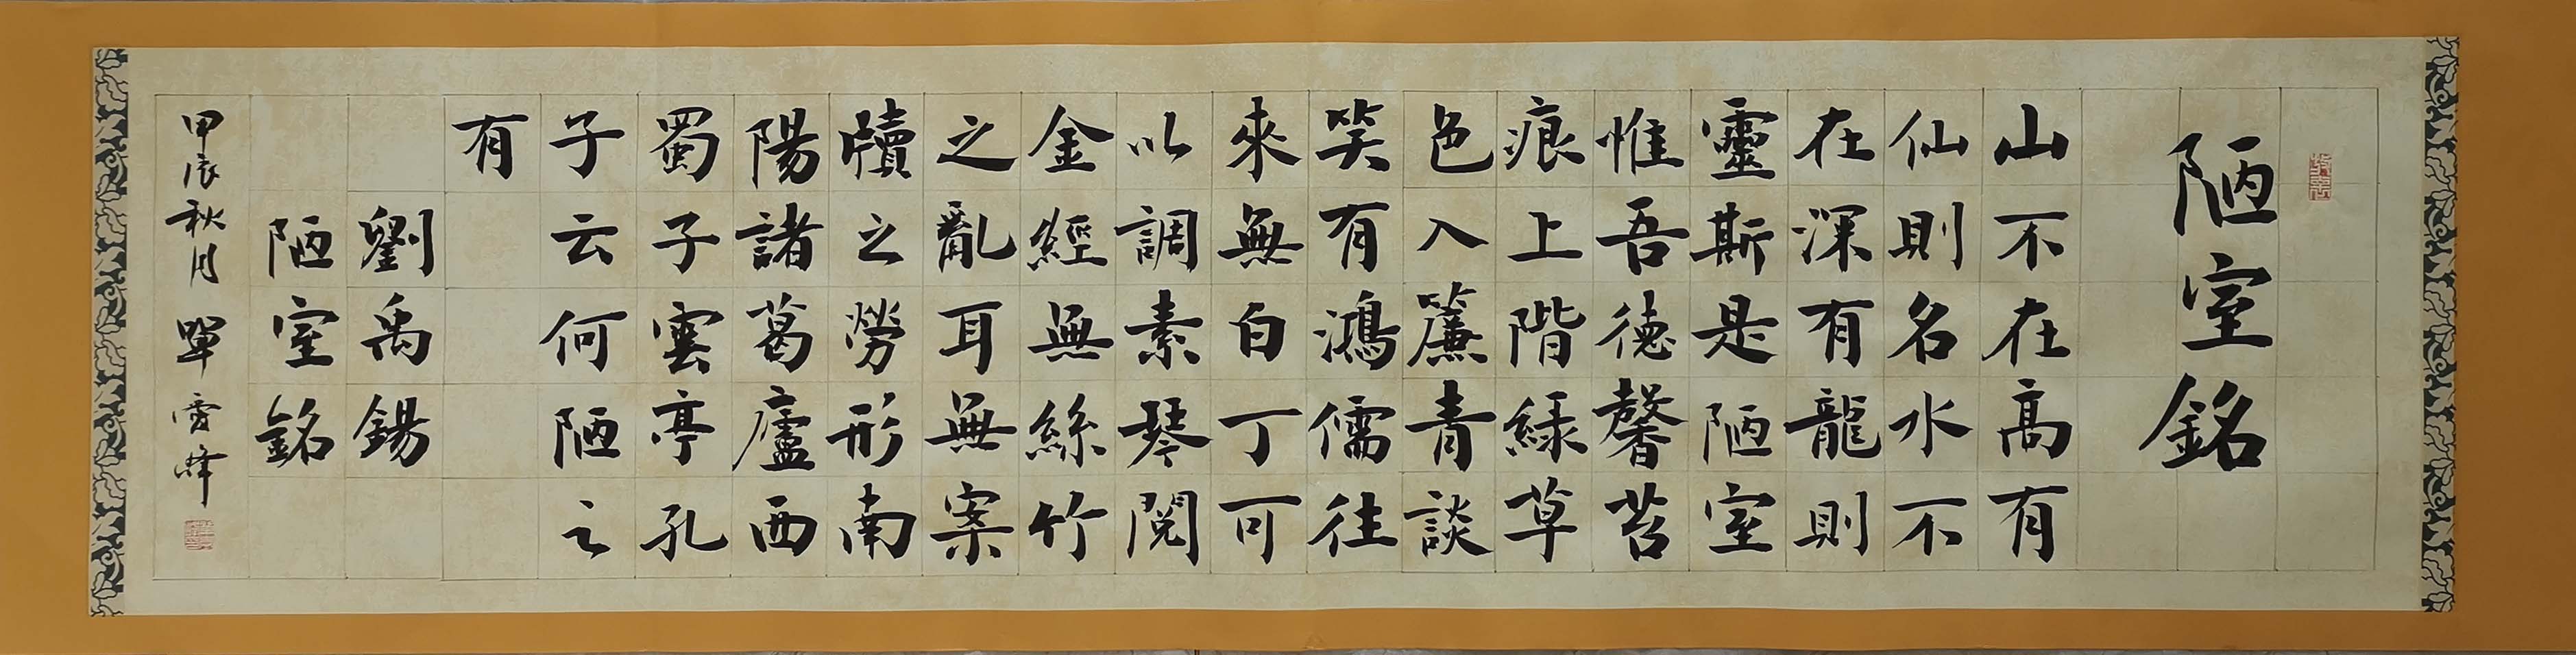 陋室銘
山不在高有
仙則名水不
在深有龍則
靈斯是陋室
惟吾德馨苔
痕上階緑草
色入簾青談
笑有鴻儒往
來無白丁可
以調素琴閱
金經無絲竹
之亂耳無案
牘之勞形南
陽諸葛廬西
蜀子雲亭孔
子云何陋之
有
劉禹錫
陋室銘
甲辰秋月 單雪峰